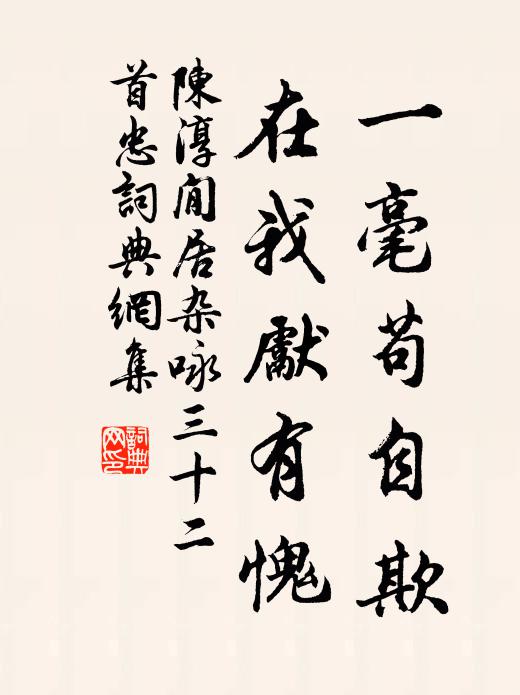 一毫苟自欺
在我獻有愧
陳淳閒居杂咏三十二
首忠詞典網集
詞典网印